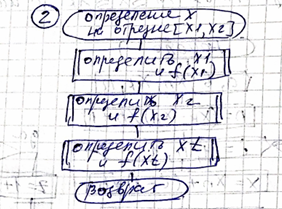 2
определение x
на отрезке [x1, x2]
определить x1
и f(x1)
определить x2
и f(x2)
определить xt
и f(xt)
возврат